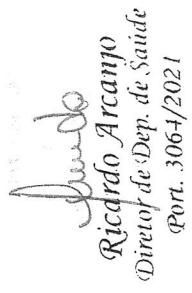 Ricardo Arcanjo
Diretor de Dep. de Saúde
Port. 3064/2021